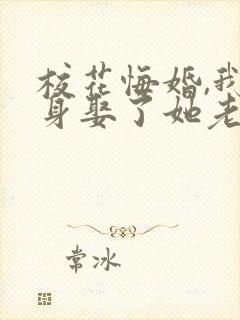 校花悔婚,我
身娶了她老
常冰